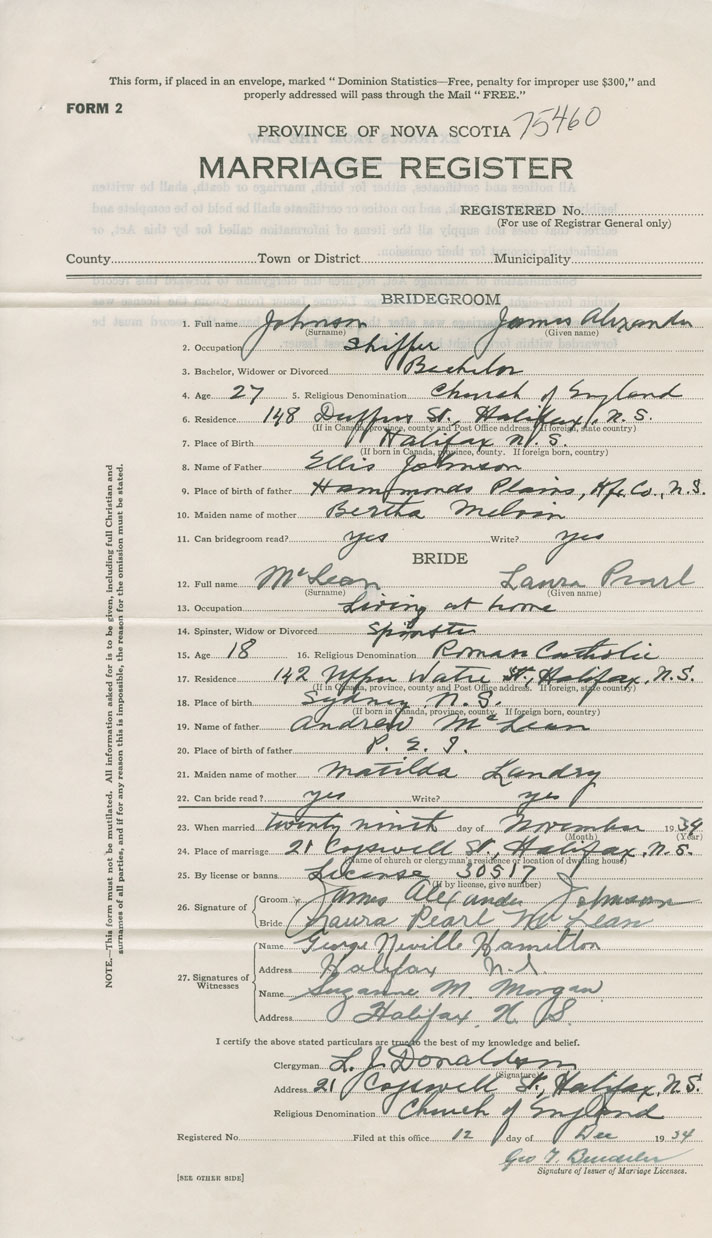 This form, if placed in an envelope, marked " Dominion Statistics—Free, penalty for improper use $300," and
properly addressed will pass through the Mail " FREE."
FORM 2
PROVINCE OF NOVA SCOTIA 75460
MARRIAGE REGISTER
REGISTERED No.
(For use of Registrar General only)
County Town or District Municipality
BRIDEGROOM
1. Full name Johnson James Alexander
(Surname) (Given name)
2. Occupation
3. Bachelor, Widower or Divorced Bachelor
4. Age 27 5. Religious Denomination Church of England
6. Residence 148 Duffus St. Halifax, N.S.
(If in Canada, province, county and Post Office address. If foreign, state country)
7. Place of Birth Halifax N.S.
(If born in Canada, province, county. If foreign born, country)
8. Name of Father Ellis Johnson
9. Place of birth of father Hammonds Plains, Hfx. Co., N.S.
10. Maiden name of mother Bertha Melvin
11. Can bridegroom read? yes Write? yes
BRIDE
12. Full name McLean Laura Pearl
(Surname) (Given name)
13. Occupation Living at home
14. Spinster, Widow or Divorced Spinster
15. Age 18 16. Religious Denomination Roman Catholic
17. Residence 142 Upper Water St., Halifax, N.S.
(If in Canada, province, county and Post Office address. If foreign, state country)
18. Place of birth Sydney N.S.
(If born in Canada, province, county. If foreign born, country)
19. Name of father Andrew McLean
20. Place of birth of father P.E.I.
21. Maiden name of mother Matilda Landry
22. Can bride read? yes Write? yes
23. When married twenty ninth day of November 1934
(Month) (Year)
24. Place of marriage 21 Cogswell St., Halifax, N.S.
(Name of church or clergyman's residence or location of dwelling house)
25. By license or banns License 30517
(If by license, give number)
26. Signature of Groom x James Alexander Johnson
Bride Laura Pearl McLean
27. Signatures of Witnesses
Name George Neville Hamilton
Address Halifax N.S.
Name Suzanne M. Morgan
Address Halifax N S.
I certify the above stated particulars are true to the best of my knowledge and belief.
Clergyman L. J. Donaldson
(Signature)
Address 21 Cogswell St., Halifax, N.S.
Religious Denomination Church of England
Registered No. Filed at this office 12 day of Dec 1934
Geo T.
Signature of Issuer of Marriage Licenses.
[SEE OTHER SIDE]
NOTE.—This form must not be mutilated. All information asked for is to be given, including full Christian and
surnames of all parties, and if for any reason this is impossible, the reason for the omission must be stated.